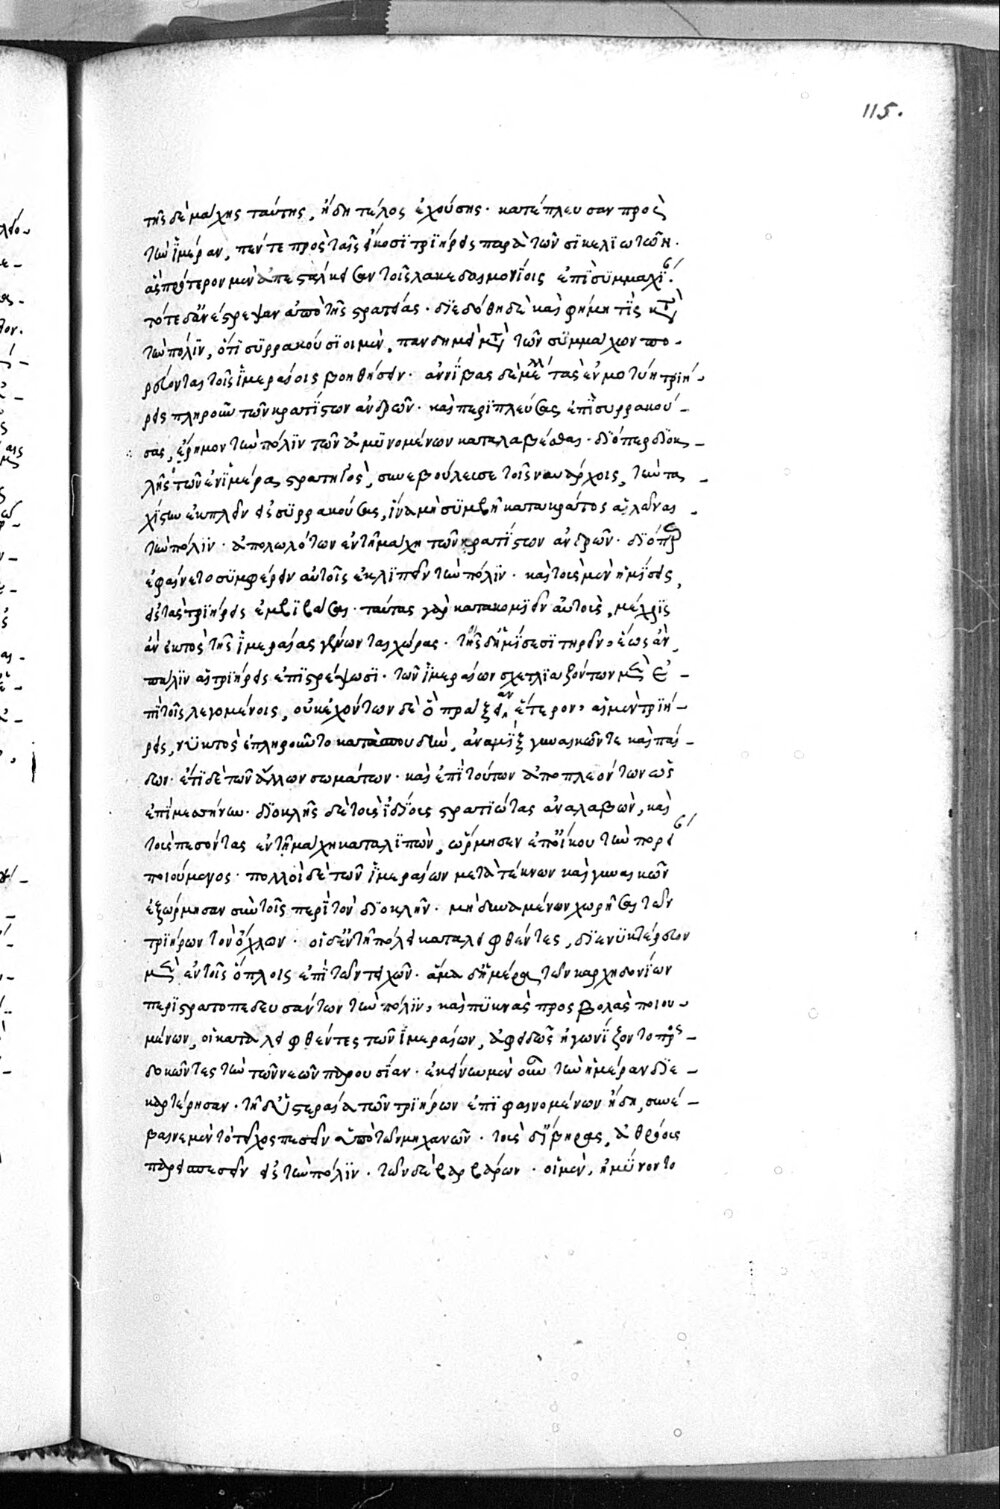 115.
τῆς δὲ μάχης ταύτης, ἤδη τέλος ἐχούσης· κατέπλευσαν πρὸς
τὴν ἱμέραν, πέντε πρὸς ταῖς εἴκοσι τριήρεις παρὰ τῶν σικελιωτῶν·
ἃς πρότερον μὲν ἀπεστάλκεισαν τοῖς λακεδαιμονίοις ἐπὶ συμμαχί·
τότε δ' ἀνέστρεψαν ἀπὸ τῆς στρατείας· διεδόθη δὲ καὶ φήμη τὶς κτ
τὴν πόλιν, ὅτι συρρακούσιοι μὲν, πανδημεὶ μετὰ τῶν συμμάχων πο-
ρεύονται τοῖς ἱμεραίοις βοηθήσειν· ἀννίβας δὲ μέλλει τὰς ἐν μοτύη τριή-
ρεις πληροῦν τῶν κρατίστων ἀνδρῶν· καὶ περιπλεύσας ἐπὶ συρρακού-
σας, ἔρημον τὴν πόλιν τῶν ἀμυνομένων καταλαβέσθαι· διόπερ διοκ-
λῆς ὁ τῶν ἐν ἱμέρα στρατηγὸς, συνεβούλευσε τοῖς ναυάρχοις, τὴν τα-
χίστην ἐκπλεῖν εἰς συρρακούσας, ἵνα μὴ συμβῆ κατακράτος ἁλῶναι
τὴν πόλιν· ἀπολωλότων ἐν τῆ μάχη τῶν κρατίστων ἀνδρῶν· διόπερ
ἐφαίνετο συμφέρειν αὐτοῖς ἐκλιπεῖν τὴν πόλιν· καὶ τοὺς μὲν ἡμίσεις,
εἰς τὰς τριήρεις ἐμβιβάσαι· ταύτας γὰρ κατακομιεῖν αὐτοὺς, μέχρις
ἂν ἐκτὸς τῆς ἱμεραίας γένωνται χώρας· τοῖς δ' ἡμίσεσι τηρεῖν, ἕως ἂν
πάλιν αἱ τριήρεις ἐπιστρέψωσι· τῶν ἱμεραίων σχετλιαζόντων μὲν ἐ-
πὶ τοῖς λεγομένοις, οὐκ ἐχόντων δὲ ὃ πράξειαν ἕτερον, αἱ μὲν τριή-
ρεις, νυκτὸς ἐπληροῦντο κατὰ σπουδὴν, ἀναμὶξ γυναικῶν τε καὶ παί-
δων· ἔτι δὲ τῶν ἄλλων σωμάτων· καὶ ἐπὶ τούτων ἀποπλεόντων ὡς
ἐπὶ μεσσήνην· διοκλῆς δὲ τοὺς ἰδίους στρατιώτας ἀναλαβὼν, καὶ
τοὺς πεσόντας ἐν τῆ μάχη καταλιπὼν, ὥρμησεν ἐπ' οἴκου τὴν πορεί
ποιούμενος· πολλοὶ δὲ τῶν ἱμεραίων μετὰ τέκνων καὶ γυναικῶν
ἐξώρμησαν σὺν τοῖς περὶ τὸν διοκλῆν· μὴ δυναμένων χωρῆσαι τῶν
τριήρων τὸν ὄχλον· οἱ δ' ἐν τῆ πόλει καταλειφθέντες, διενυκτέρευον
μὲν ἐν τοῖς ὅπλοις ἐπὶ τῶν τειχῶν· ἅμα δ' ἡμέρα τῶν καρχηδονίων
περιστρατοπεδευσάντων τὴν πόλιν, καὶ πυκνὰς προσβολὰς ποιου-
μένων, οἱ καταλειφθέντες τῶν ἱμεραίων, ἀφειδῶς ἠγωνίζοντο προσ-
δοκῶντες τὴν τῶν νεῶν παρουσίαν· ἐκείνην μὲν οὖν τὴν ἡμέραν διε-
καρτέρησαν· τῆ δ' ὑστεραία τῶν τριήρων ἐπιφαινομένων ἤδη, συνέ-
βαινε μὲν τὸ τεῖχος πεσεῖν ὑπὸ τῶν μηχανῶν· τοὺς δ' ἴβηρας, ἀθρόους
παρεισπεσεῖν εἰς τὴν πόλιν· τῶν δὲ βαρβάρων· οἱ μὲν, ἠμύνοντο